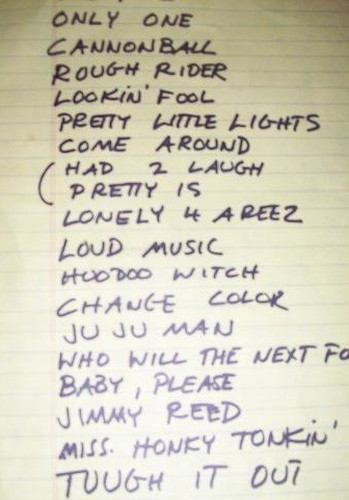 ONLY ONE
CANNONBALL
ROUGH RIDER
LOOKIN' FOOL
PRETTY LITTLE LIGHTS
COME AROUND
HAD 2 LAUGH
PRETTY IS
LONELY 4 AREEZ
LOUD MUSIC
HOODOO WITCH
CHANGE COLOR
JU JU MAN
WHO WILL THE NEXT FO
BABY, PLEASE
JIMMY REED
MISS. HONKY TONKIN'
TUUGH IT OUT